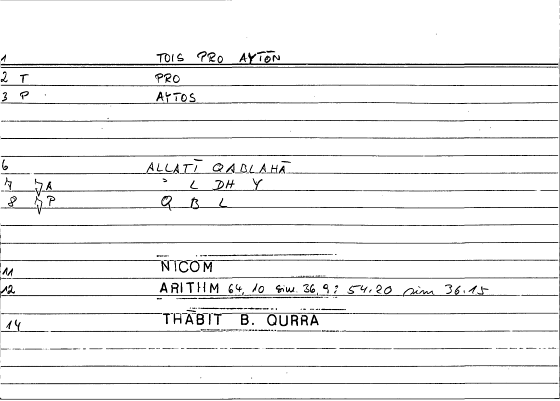 1 TOIS PRO AYTŌN
2 T PRO
3 P AYTOS
6 ALLATĪ QABLAHĀ
7 A ʾ L DH Y
8 P Q B L
11 NICOM
12 ARITHM 64,10 sim. 36,9; 54.20 sim 36.15
14 THĀBIT B. QURRA